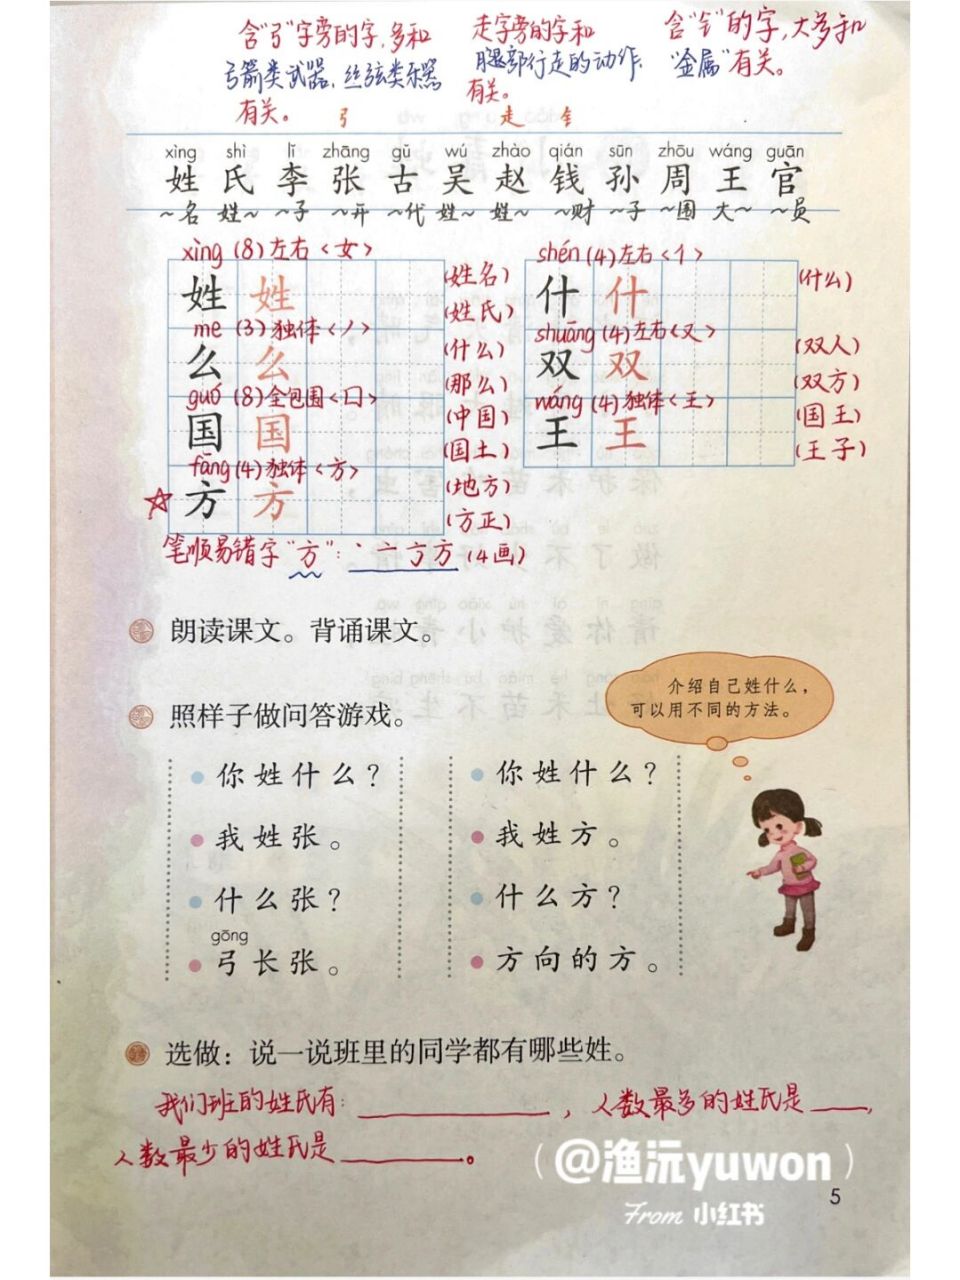 含“弓”字旁的字,多和
弓箭类武器、丝弦类乐器
有关。
走字旁的字和
腿部行走的动作
有关。
含“钅”的字,大多和
“金属”有关。
弓 走 钅
xìng shì lǐ zhāng gǔ wú zhào qián sūn zhōu wáng guān
姓 氏 李 张 古 吴 赵 钱 孙 周 王 官
~名 姓~ ~子 ~开 ~代 姓~ 姓~ ~财 ~子 ~围 大~ ~员
xìng (8) 左右<女>
姓 姓 (姓名)
(姓氏)
me (3) 独体<丿>
么 么 (什么)
(那么)
guó (8) 全包围<囗>
国 国 (中国)
(国土)
fāng (4) 独体<方>
☆ 方 方 (地方)
(方正)
shén (4) 左右<亻>
什 什 (什么)
shuāng (4) 左右<又>
双 双 (双人)
(双方)
wáng (4) 独体<王>
王 王 (国王)
(王子)
笔顺易错字“方”:丶 亠 亐 方 (4画)
朗读课文。背诵课文。
照样子做问答游戏。
介绍自己姓什么,
可以用不同的方法。
你姓什么?
我姓张。
什么张?
gōng
弓长张。
你姓什么?
我姓方。
什么方?
方向的方。
选做:说一说班里的同学都有哪些姓。
我们班的姓氏有:__________,人数最多的姓氏是____,
人数最少的姓氏是______。
(@渔沅yuwon)
From 小红书
5